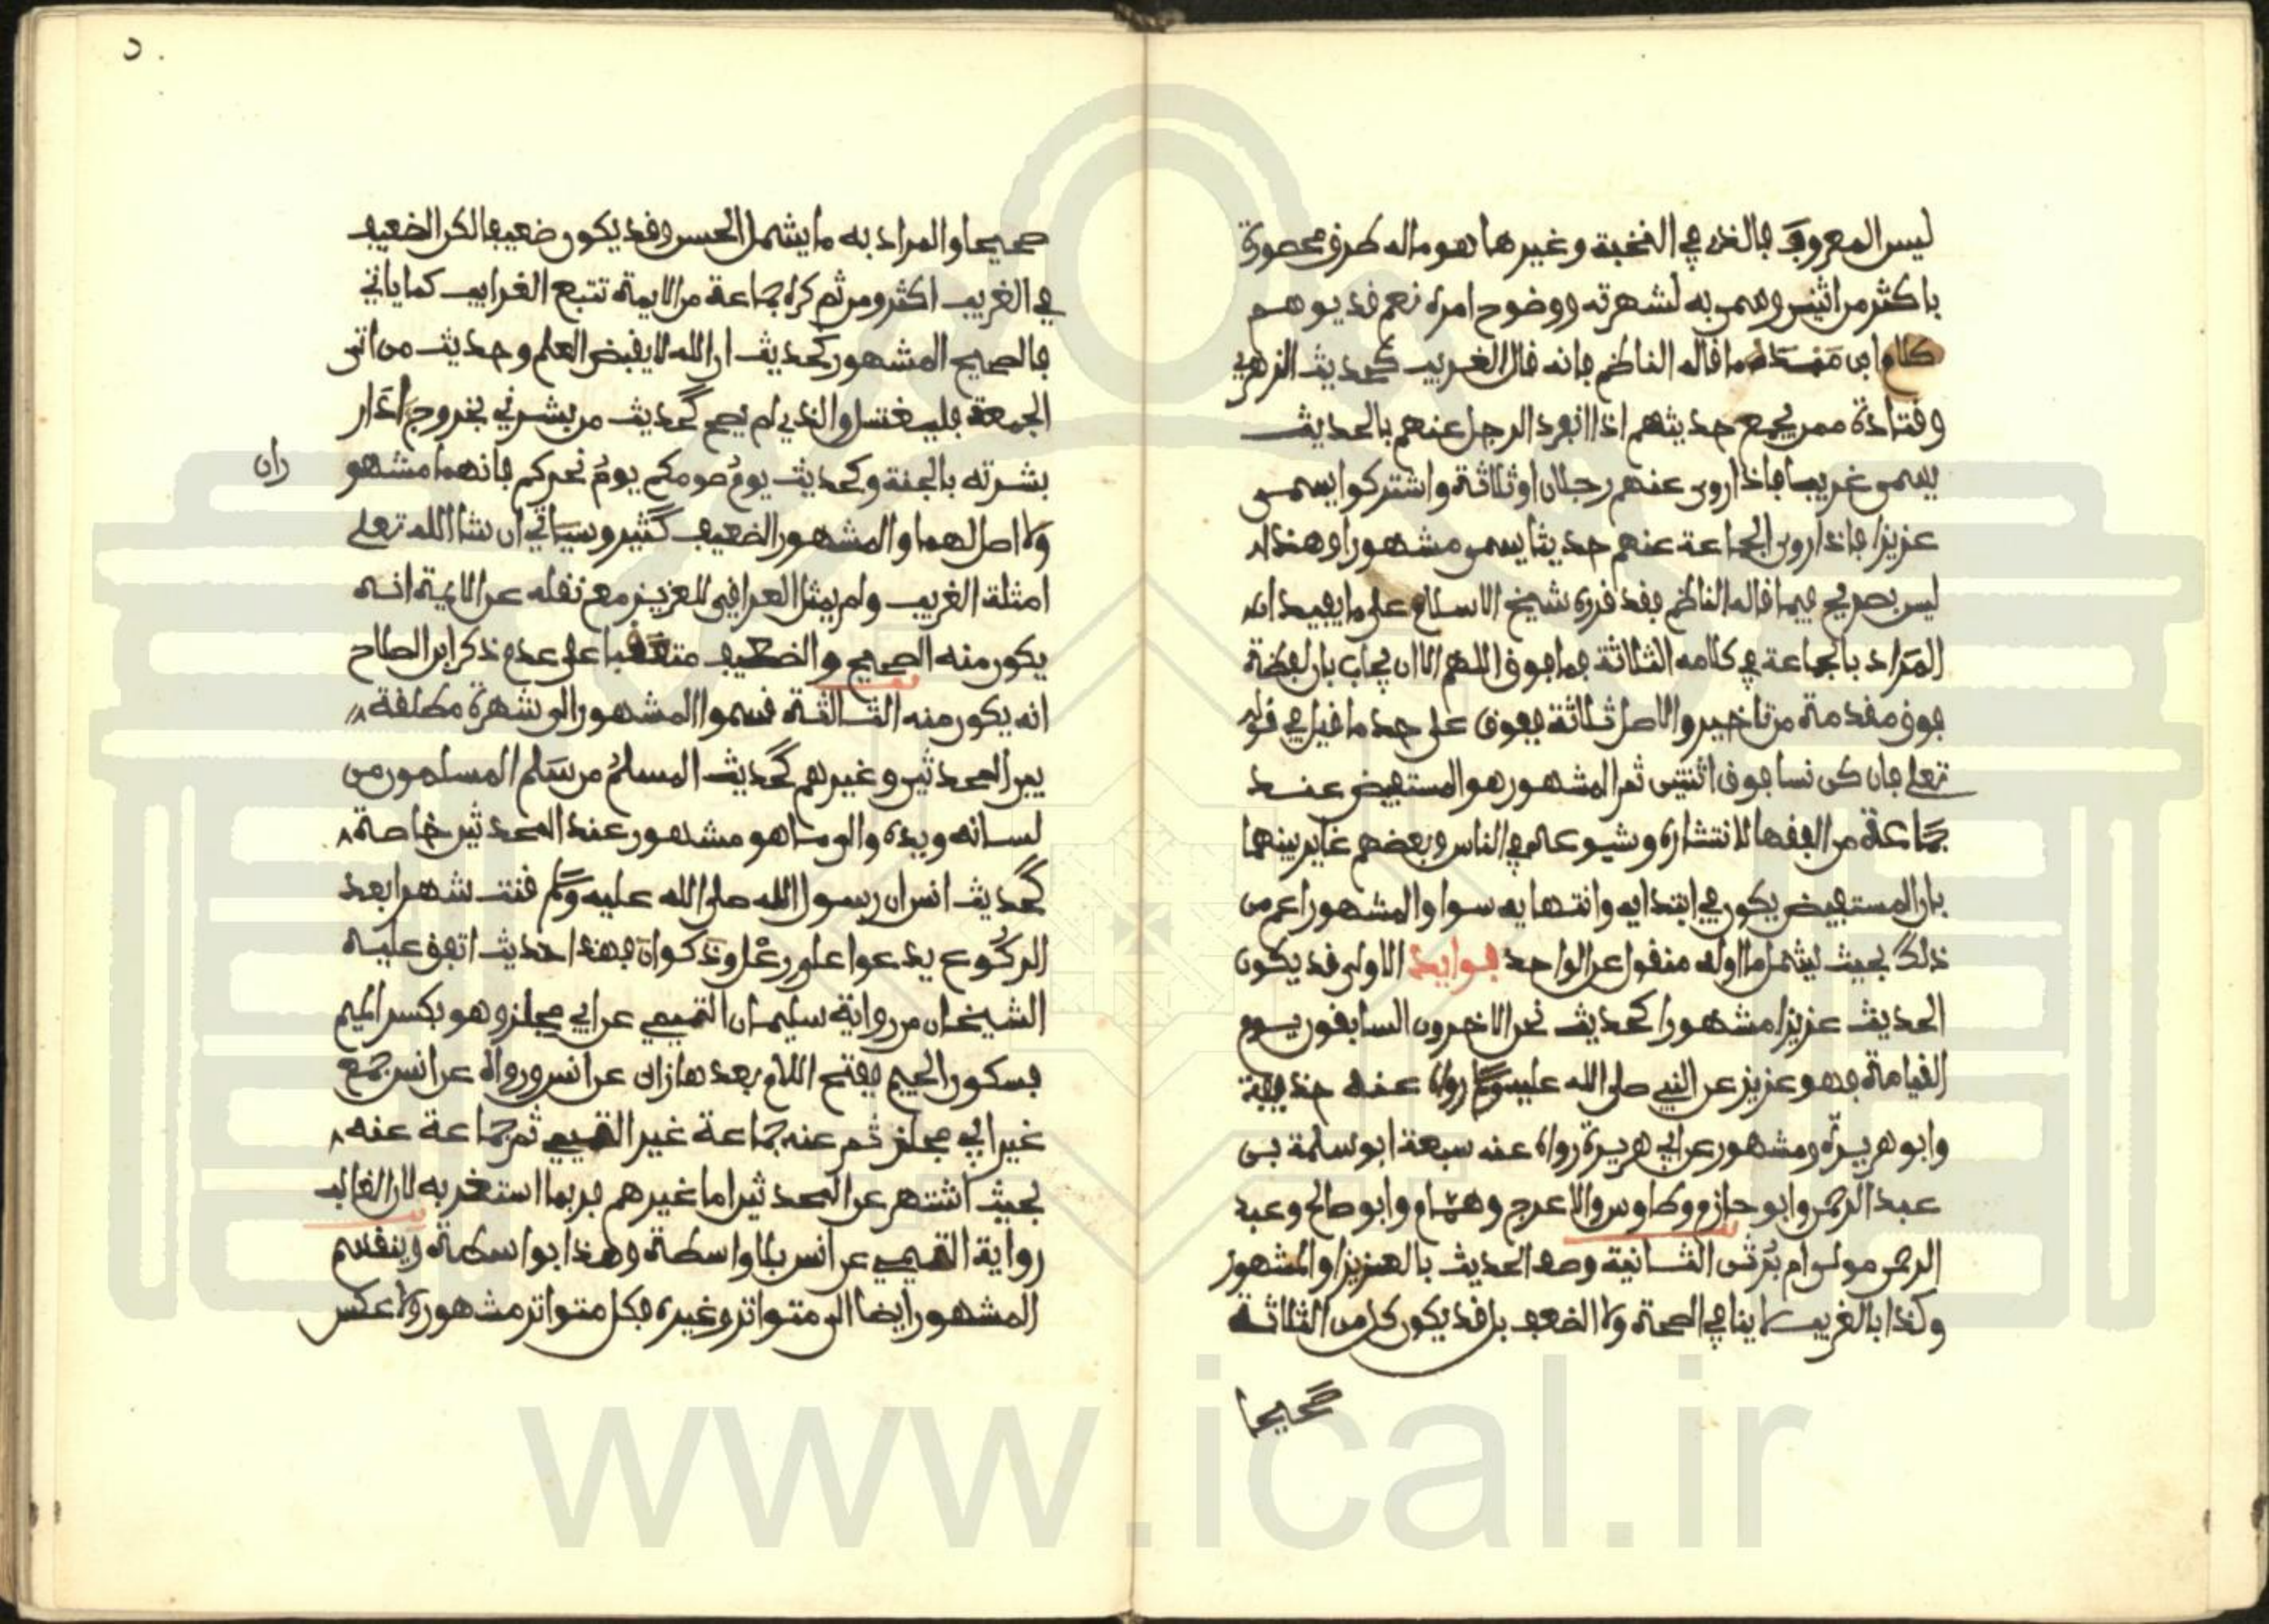 ليس المعروف فالذي في النخبة وغيرها هو ماله طرق محصورة
باكثر من اثنين وسمي به لشهرته ووضوح امره نعم قد يوهم
كلام ابن منده ما قاله الناظم فانه قال الغريب كحديث الزهري
وقتادة ممن يجمع حديثهم اذا انفرد الرجل عنهم بالحديث
يسمى غريبا فاذا روى عنهم رجلان او ثلاثة واشتركوا يسمى
عزيزا فاذا روى الجماعة عنهم حديثا يسمى مشهورا وهذا
ليس بصريح فيما قاله الناظم فقد قرره شيخ الاسلام على ما يفيد ان
المراد بالجماعة في كلامه الثلاثة فما فوق اللهم الا ان يجاب بان لفظة
فوق مقدمة من تاخير والاصل ثلاثة ففوق على حد ما قيل في قوله
تعلى فان كن نسا فوق اثنتين ثم المشهور هو المستفيض عند
جماعة من الفقها لانتشاره وشيوعه في الناس وبعضهم غاير بينهما
بان المستفيض يكون في ابتدايه وانتهايه سوا والمشهور اعم من
ذلك بحيث يشمل ما اوله منقول عن الواحد فوايد الاولى قد يكون
الحديث عزيزا مشهورا كحديث نحن الاخرون السابقون يوم
القيامة فهو عزيز عن النبي صلى الله عليه وسلم رواه عنه حذيفة
وابو هريرة ومشهور عن ابي هريرة رواه عنه سبعة ابو سلمة بن
عبد الرحمن وابو حازم وطاوس والاعرج وهمام وابو صالح وعبد
الرحمن مولى ام برثن الثانية وصف الحديث بالعزيز او المشهور
وكذا بالغريب لا ينافي الصحة ولا الضعف بل قد يكون كل من الثلاثة
صحيحا
صحيحا والمراد به ما يشمل الحسن وقد يكون ضعيفا لكن الضعيف
في الغريب اكثر ومن ثم كره جماعة من الايمة تتبع الغرايب كما ياتي
فالصحيح المشهور كحديث ان الله لا يقبض العلم وحديث من اتى
الجمعة فليغتسل والذي لم يصح كحديث من بشرني بخروج اذار
بشرته بالجنة وكحديث يوم صومكم يوم نحركم فانهما مشهو ران
ولا اصل لهما والمشهور الضعيف كثير وسياتي ان شا الله تعلى
امثلة الغريب ولم يمثل العراقي للعزيز مع نقله عن الايمة انه
يكون منه الصحيح والضعيف متعقبا على عدم ذكر ابن الصلاح
انه يكون منه الثالثة قسموا المشهور الى شهرة مطلقة
بين المحدثين وغيرهم كحديث المسلم من سلم المسلمون من
لسانه ويده والى ما هو مشهور عند المحدثين خاصة
كحديث انس ان رسول الله صلى الله عليه وسلم قنت شهرا بعد
الركوع يدعوا على رعل وذكوان فهذا حديث اتفق عليه
الشيخان من رواية سليمان التيمي عن ابي مجلز وهو بكسر الميم
فسكون الجيم ففتح اللام بعدها زاي عن انس ورواه عن انس جمع
غير ابي مجلز ثم عنه جماعة غير التيمي ثم جماعة عنه
بحيث اشتهر عن المحدثين اما غيرهم فربما استغربه لان الغالب
رواية التيمي عن انس بلا واسطة وهذا بواسطة وينقسم
المشهور ايضا الى متواتر وغيره فكل متواتر مشهور ولا عكس
www.ical.ir